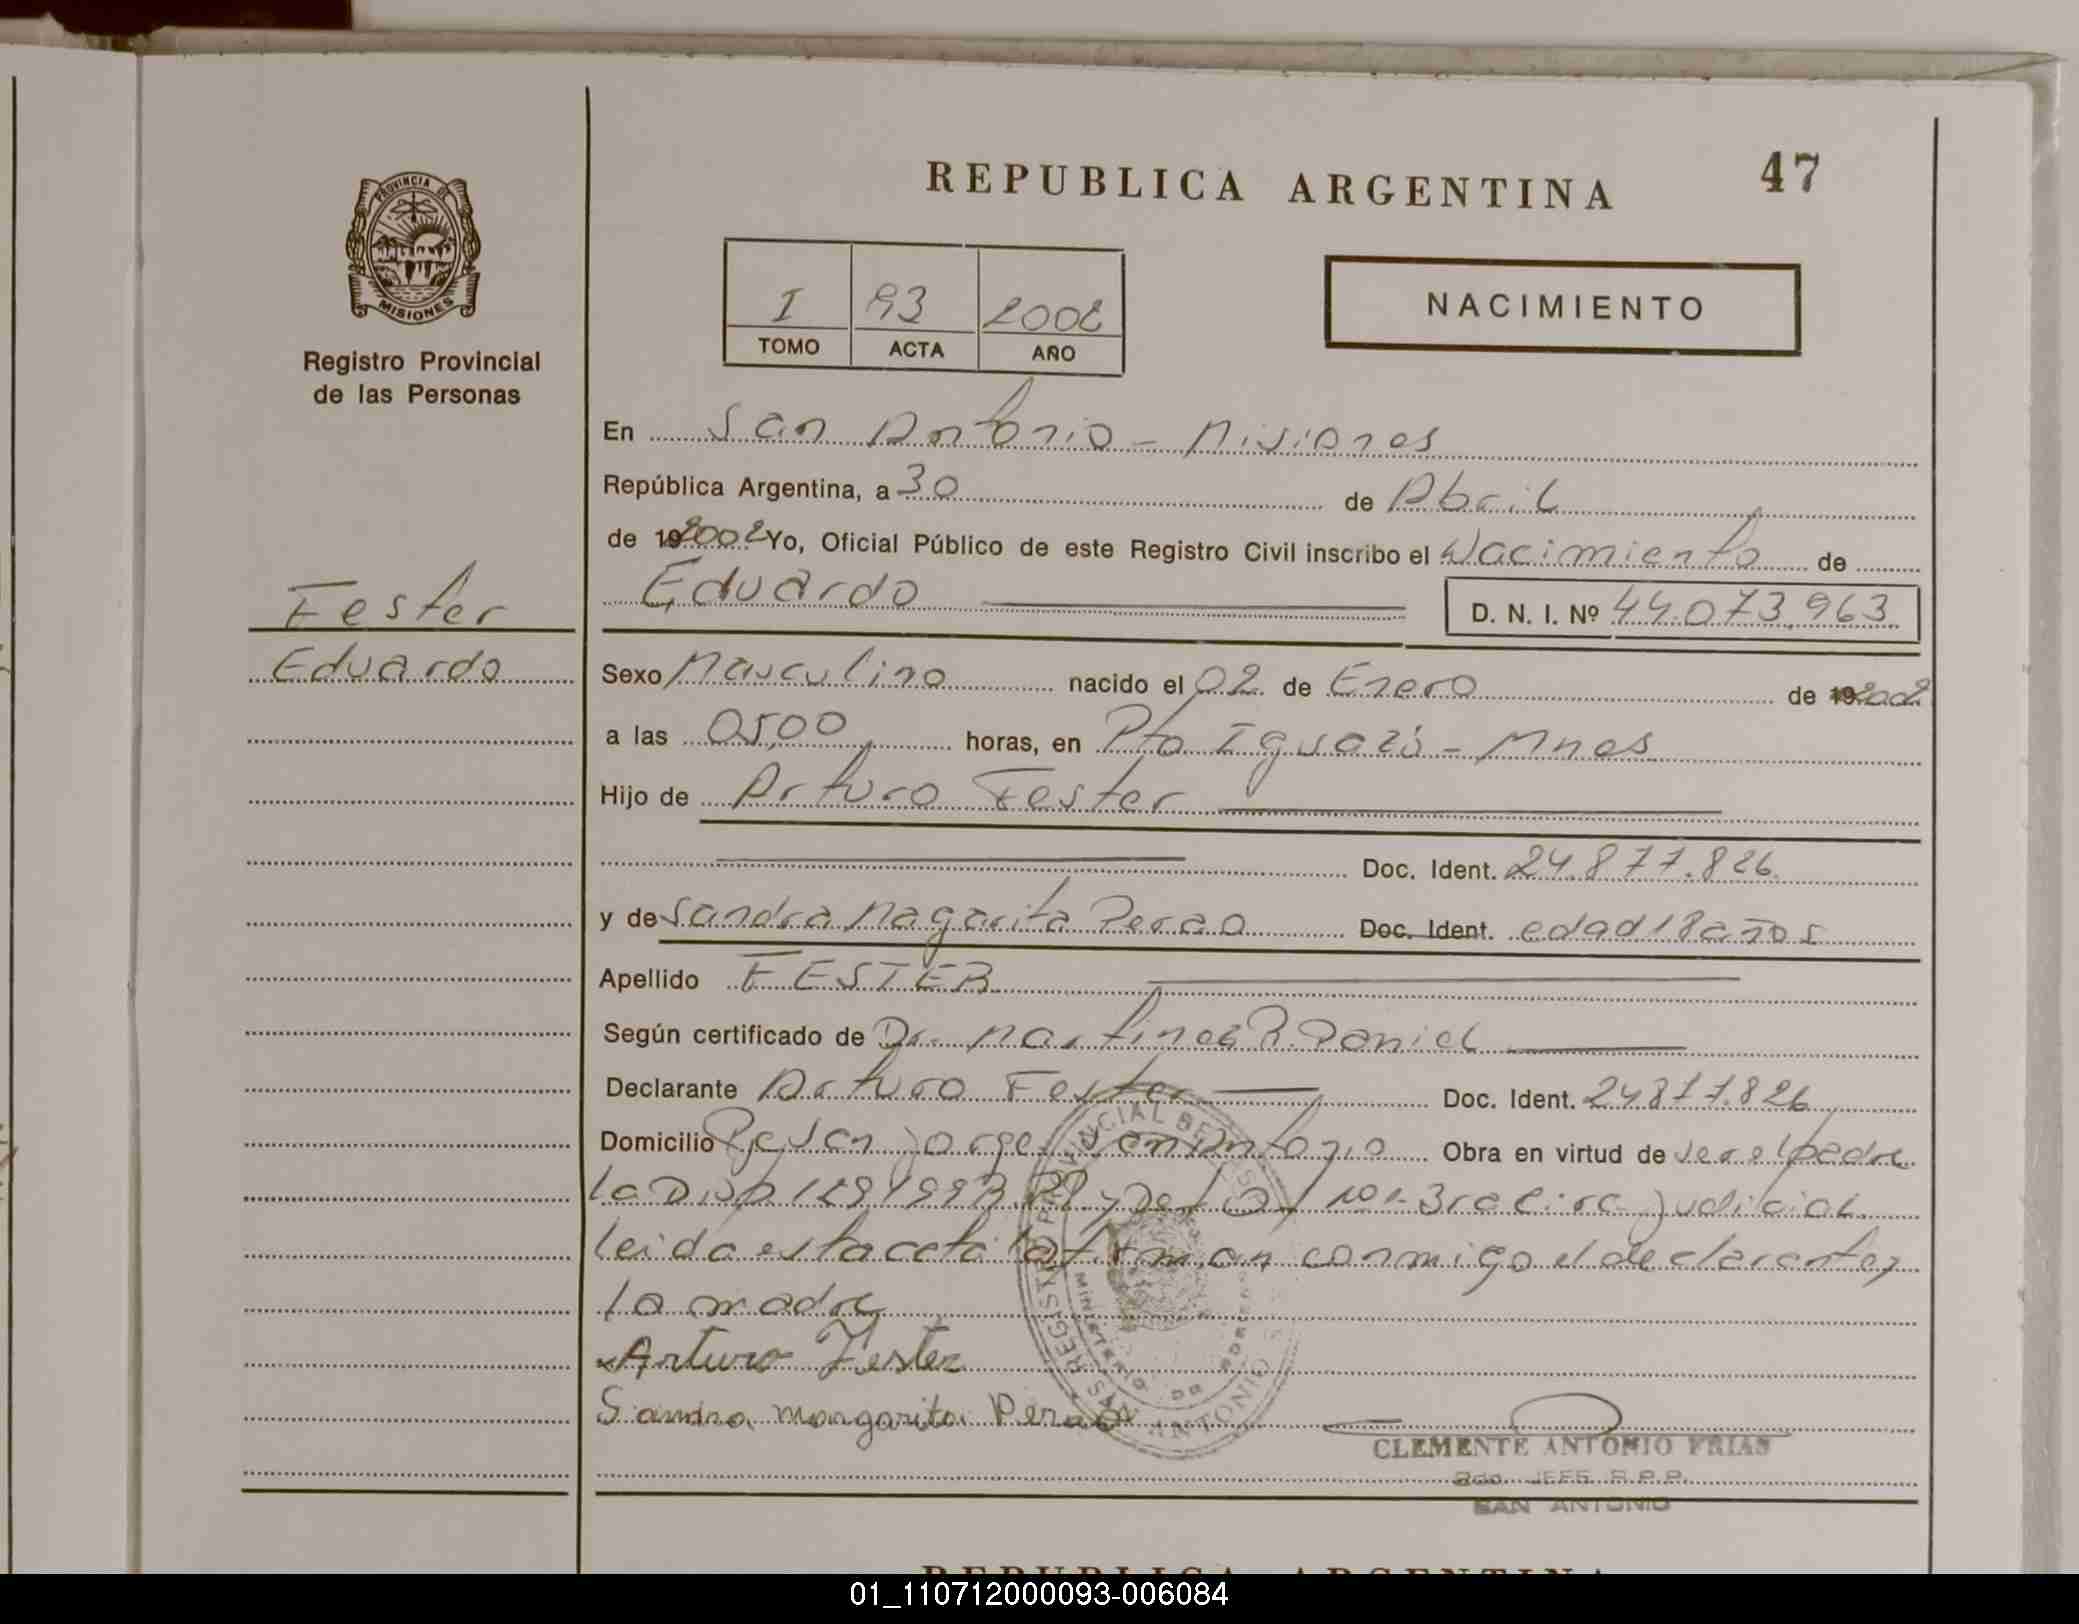 REPUBLICA ARGENTINA
47
PROVINCIA DE
MISIONES
Registro Provincial
de las Personas
I 93 2002
TOMO ACTA AÑO
NACIMIENTO
En San Antonio - Misiones
República Argentina, a 30 de Abril
de 19 2002 Yo, Oficial Público de este Registro Civil inscribo el Nacimiento de
Eduardo D. N. I. Nº 44.073.963
Fester
Eduardo
Sexo Masculino nacido el 02 de Enero de 19 2002
a las 05,00 horas, en Pto Iguazú - Mnes
Hijo de Arturo Fester
Doc. Ident. 24.877.826
y de Sandra Magarita Perao Doc. Ident. edad 18 años
Apellido FESTER
Según certificado de Dr. Martinez R. Daniel
Declarante Arturo Fester Doc. Ident. 24877.826
Domicilio San Jorge San Antonio Obra en virtud de ser el padre
la Disp judicial
leida esta acta la firman conmigo el declarante y
la madre
Arturo Fester
Sandra Margarita Perao
CLEMENTE ANTONIO FRIAS
JEFE R.P.P.
SAN ANTONIO
REPUBLICA ARGENTINA
01_110712000093-006084